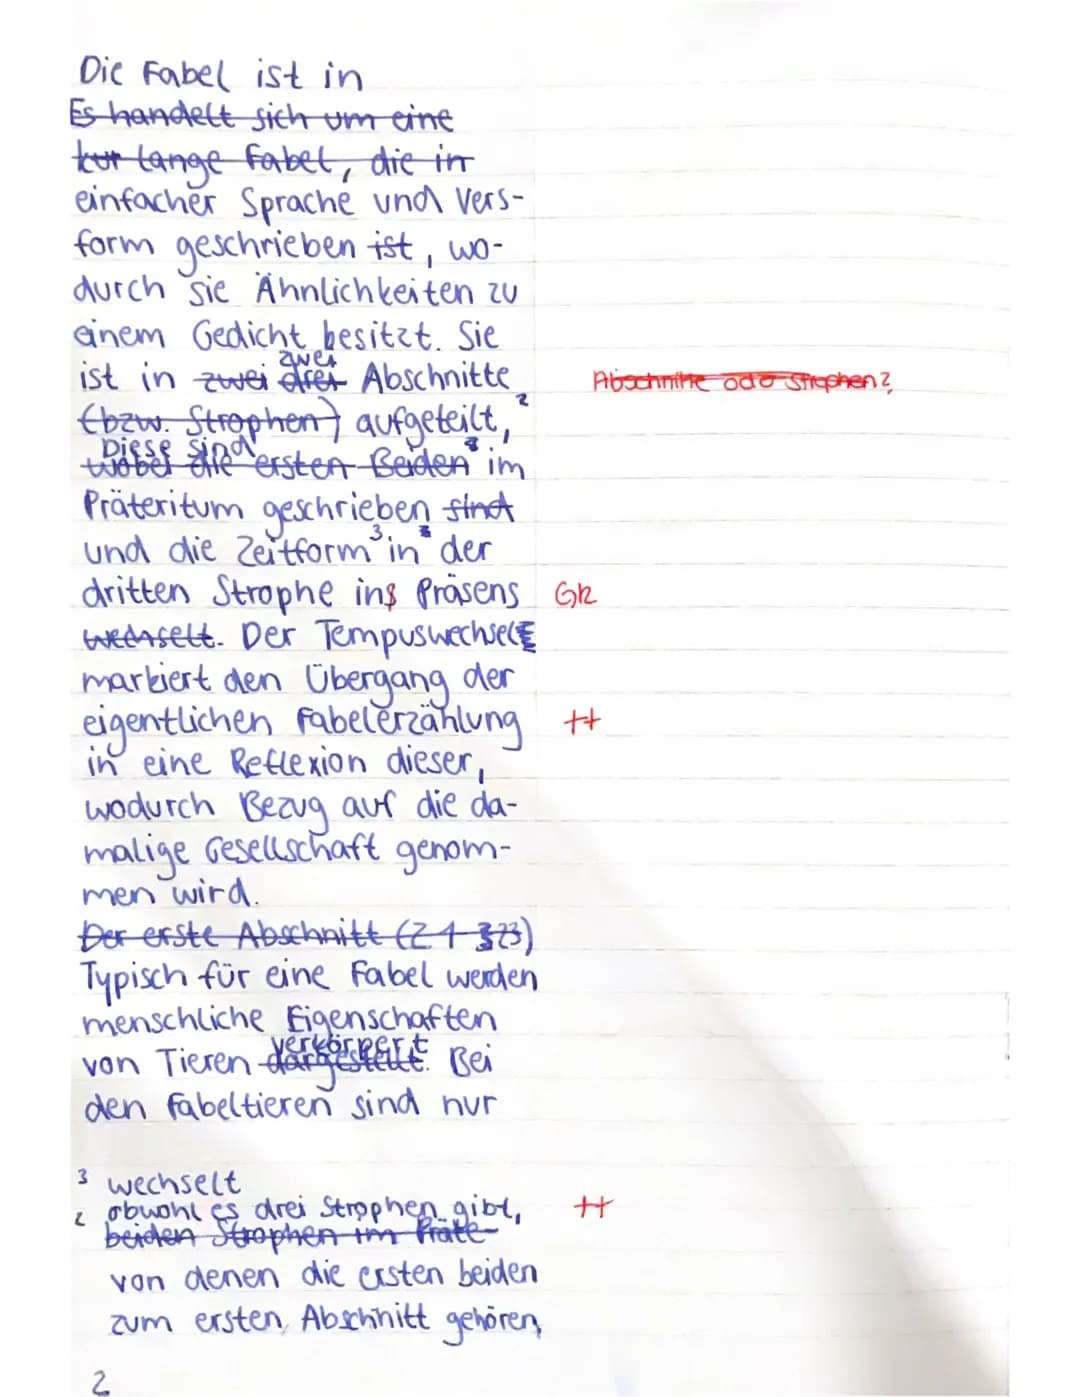 Die Fabel ist in
Es handelt sich um eine
kur lange Fabel, die in
einfacher Sprache und Vers-
form geschrieben ist, wo-
durch sie Ähnlichkeiten zu
einem Gedicht besitzt. Sie
zwei
ist in zwei drei Abschnitte
Abschnitte oder Strophen?
(bzw. Strophen) aufgeteilt, ²
Diese sind
wobei die ersten Beiden im
Präteritum geschrieben sind
und die Zeitform ³ in der
dritten Strophe ins Präsens
GR
wechselt. Der Tempuswechsel
markiert den Übergang der
eigentlichen Fabelerzählung
++
in eine Reflexion dieser,
wodurch Bezug auf die da-
malige Gesellschaft genom-
men wird.
Der erste Abschnitt (Z 1 - 23)
Typisch für eine Fabel werden
menschliche Eigenschaften
verkörpert
von Tieren dargestellt. Bei
den Fabeltieren sind nur
³ wechselt
² obwohl es drei Strophen gibt,
++
beiden Strophen im Präte-
von denen die ersten beiden
zum ersten Abschnitt gehören,
2